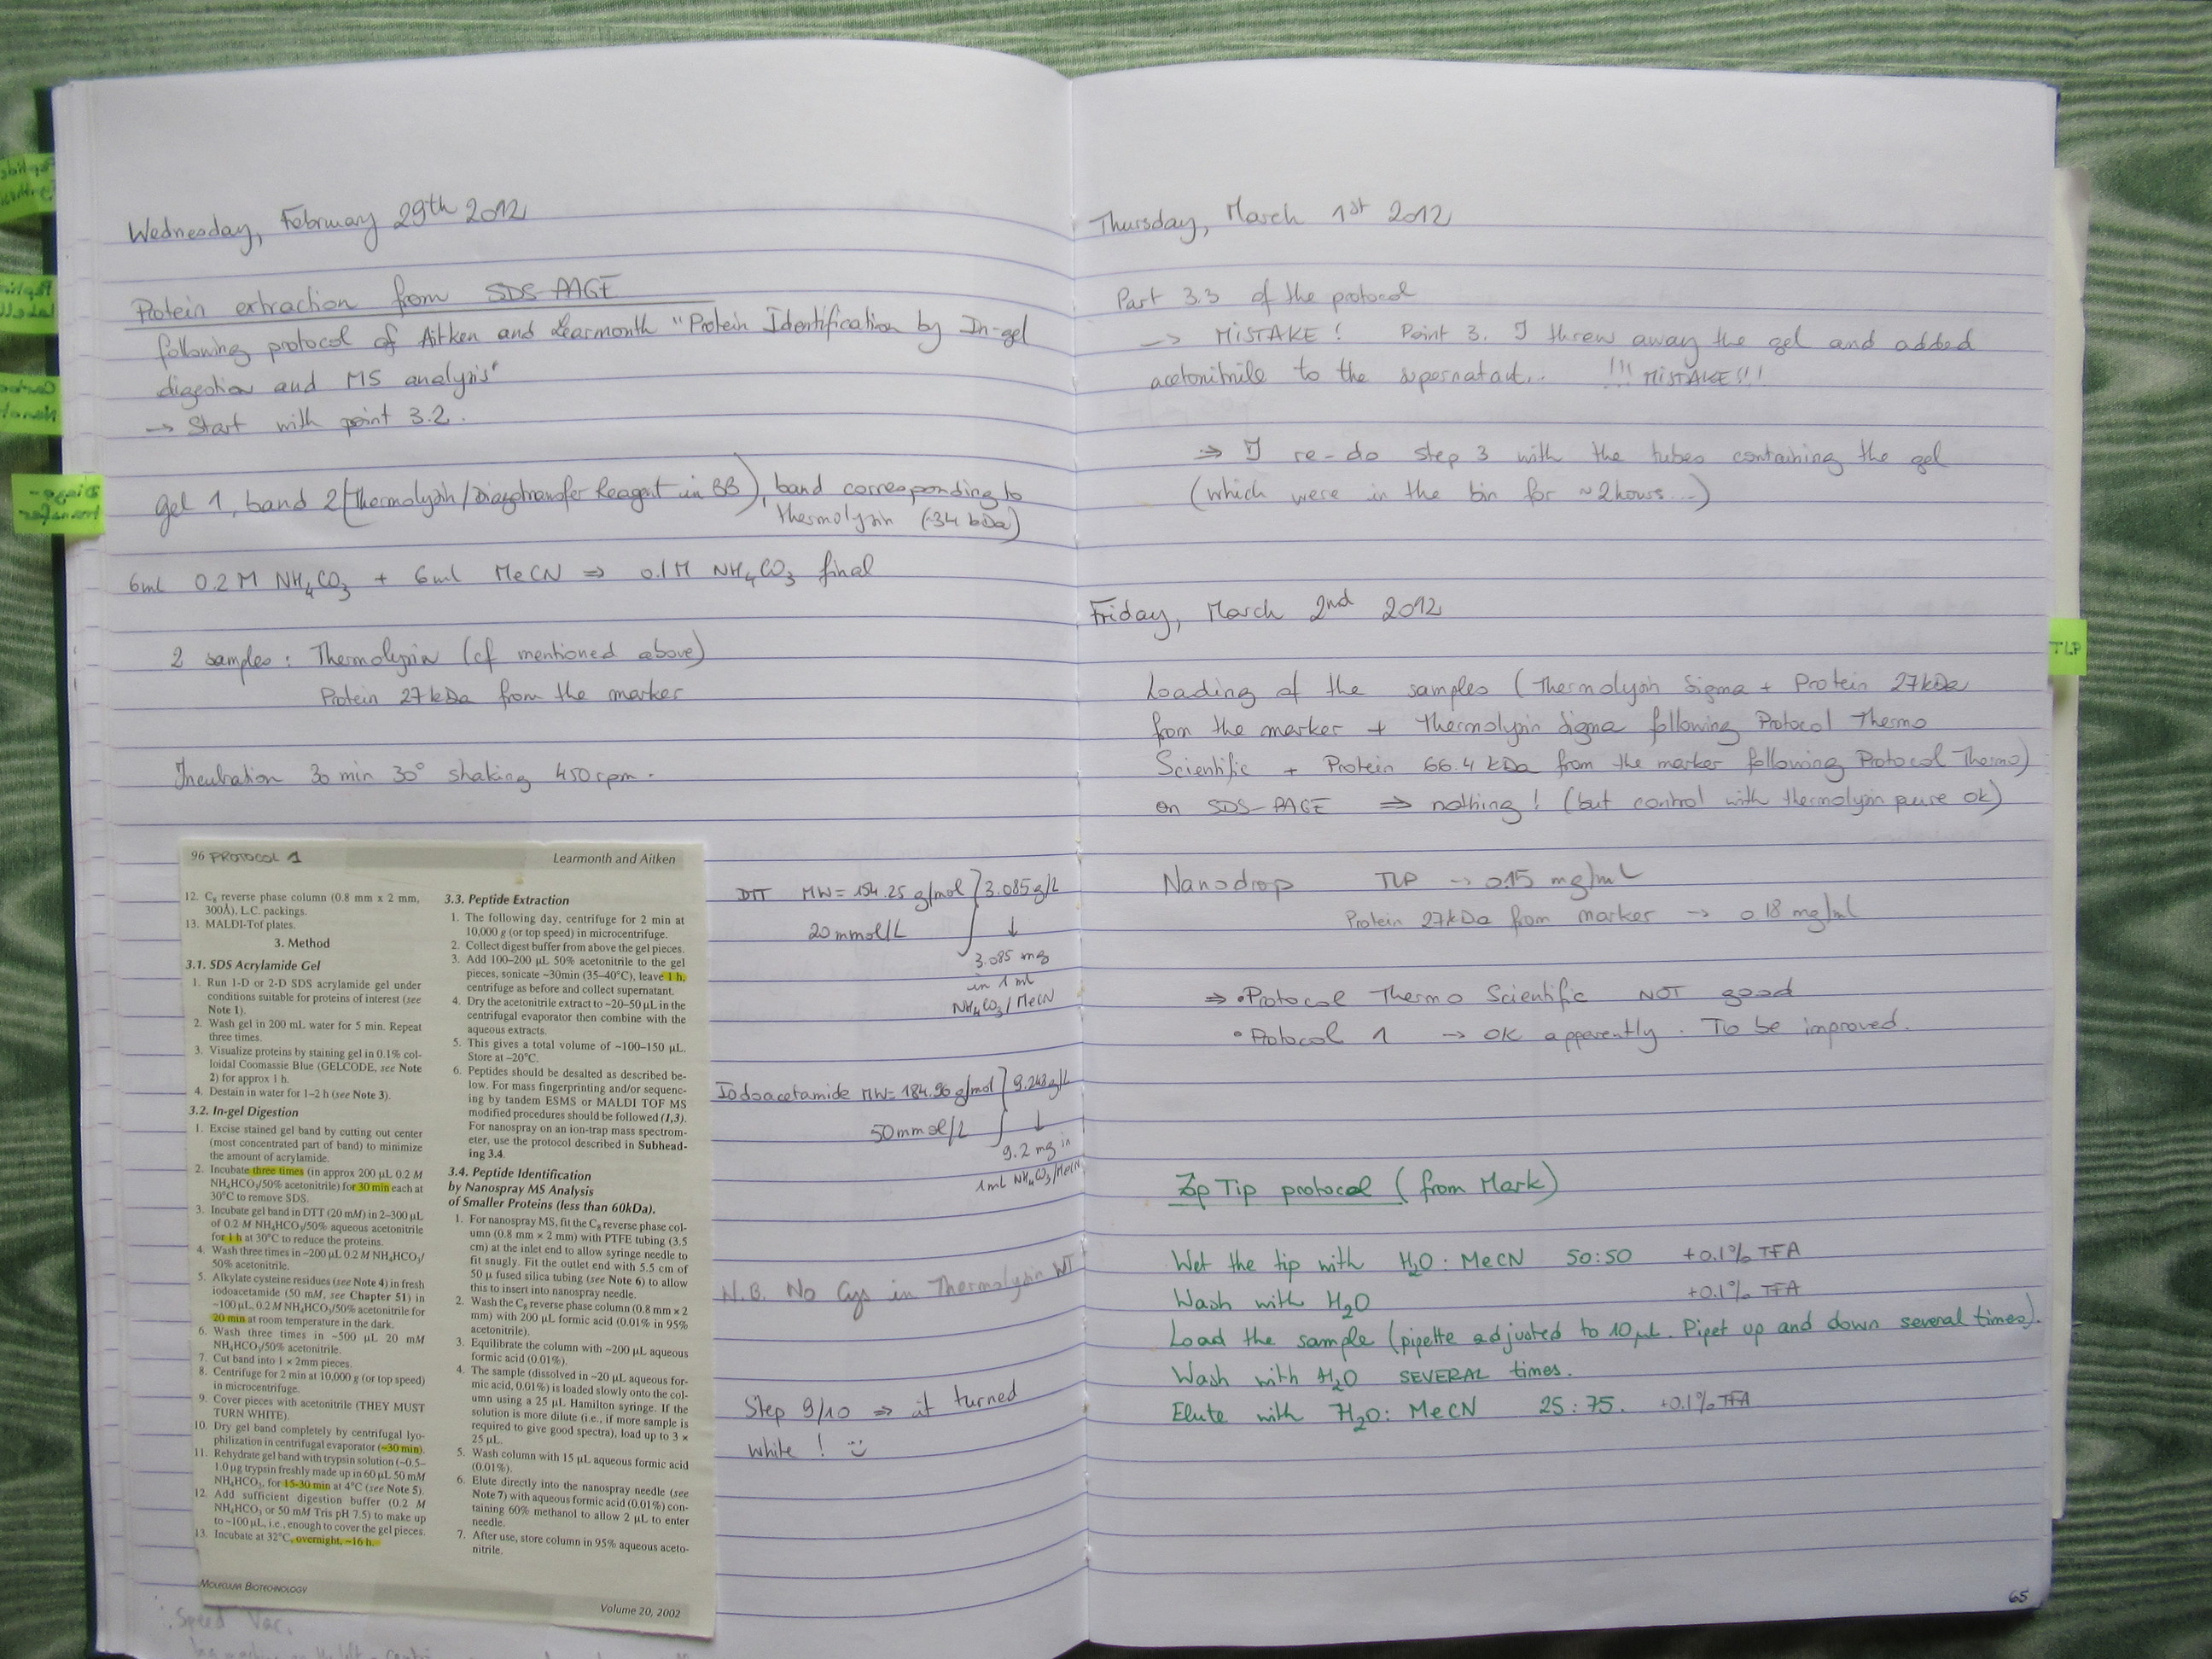 Wednesday, February 29th 2012
Protein extraction from SDS-PAGE
following protocol of Aitken and Learmonth "Protein Identification by In-gel
digestion and MS analysis"
→ Start with point 3.2.
Gel 1, band 2 (Thermolysin/Diazotransfer Reagent in BB), band corresponding to
thermolysin (~34 kDa)
6ml 0.2 M NH4CO3 + 6ml MeCN ⇒ 0.1M NH4CO3 final
2 samples: Thermolysin (cf mentioned above)
Protein 27kDa from the marker
Incubation 30 min 30° shaking 450rpm.
96 PROTOCOL 1
Learmonth and Aitken
12. C8 reverse phase column (0.8 mm x 2 mm,
300Å). L.C. packings.
13. MALDI-Tof plates.
3. Method
3.1. SDS Acrylamide Gel
1. Run 1-D or 2-D SDS acrylamide gel under
conditions suitable for proteins of interest (see
Note 1).
2. Wash gel in 200 mL water for 5 min. Repeat
three times.
3. Visualize proteins by staining gel in 0.1% col-
loidal Coomassie Blue (GELCODE, see Note
2) for approx 1 h.
4. Destain in water for 1–2 h (see Note 3).
3.2. In-gel Digestion
1. Excise stained gel band by cutting out center
(most concentrated part of band) to minimize
the amount of acrylamide.
2. Incubate three times (in approx 200 µL 0.2 M
NH4HCO3/50% acetonitrile) for 30 min each at
30°C to remove SDS.
3. Incubate gel band in DTT (20 mM) in 2–300 µL
of 0.2 M NH4HCO3/50% aqueous acetonitrile
for 1 h at 30°C to reduce the proteins.
4. Wash three times in ~200 µL 0.2 M NH4HCO3/
50% acetonitrile.
5. Alkylate cysteine residues (see Note 4) in fresh
iodoacetamide (50 mM, see Chapter 51) in
~100 µL, 0.2 M NH4HCO3/50% acetonitrile for
20 min at room temperature in the dark.
6. Wash three times in ~500 µL 20 mM
NH4HCO3/50% acetonitrile.
7. Cut band into 1 × 2mm pieces.
8. Centrifuge for 2 min at 10,000 g (or top speed)
in microcentrifuge.
9. Cover pieces with acetonitrile (THEY MUST
TURN WHITE).
10. Dry gel band completely by centrifugal lyo-
philization in centrifugal evaporator (~30 min).
11. Rehydrate gel band with trypsin solution (~0.5–
1.0 µg trypsin freshly made up in 60 µL 50 mM
NH4HCO3, for 15-30 min at 4°C (see Note 5).
12. Add sufficient digestion buffer (0.2 M
NH4HCO3 or 50 mM Tris pH 7.5) to make up
to ~100 µL, i.e., enough to cover the gel pieces.
13. Incubate at 32°C, overnight, ~16 h.
3.3. Peptide Extraction
1. The following day, centrifuge for 2 min at
10,000 g (or top speed) in microcentrifuge.
2. Collect digest buffer from above the gel pieces.
3. Add 100–200 µL 50% acetonitrile to the gel
pieces, sonicate ~30min (35–40°C), leave 1 h,
centrifuge as before and collect supernatant.
4. Dry the acetonitrile extract to ~20–50 µL in the
centrifugal evaporator then combine with the
aqueous extracts.
5. This gives a total volume of ~100–150 µL.
Store at –20°C.
6. Peptides should be desalted as described be-
low. For mass fingerprinting and/or sequenc-
ing by tandem ESMS or MALDI TOF MS
modified procedures should be followed (1,3).
For nanospray on an ion-trap mass spectrom-
eter, use the protocol described in Subhead-
ing 3.4.
3.4. Peptide Identification
by Nanospray MS Analysis
of Smaller Proteins (less than 60kDa).
1. For nanospray MS, fit the C8 reverse phase col-
umn (0.8 mm × 2 mm) with PTFE tubing (3.5
cm) at the inlet end to allow syringe needle to
fit snugly. Fit the outlet end with 5.5 cm of
50 µ fused silica tubing (see Note 6) to allow
this to insert into nanospray needle.
2. Wash the C8 reverse phase column (0.8 mm × 2
mm) with 200 µL formic acid (0.01% in 95%
acetonitrile).
3. Equilibrate the column with ~200 µL aqueous
formic acid (0.01%).
4. The sample (dissolved in ~20 µL aqueous for-
mic acid, 0.01%) is loaded slowly onto the col-
umn using a 25 µL Hamilton syringe. If the
solution is more dilute (i.e., if more sample is
required to give good spectra), load up to 3 ×
25 µL.
5. Wash column with 15 µL aqueous formic acid
(0.01%).
6. Elute directly into the nanospray needle (see
Note 7) with aqueous formic acid (0.01%) con-
taining 60% methanol to allow 2 µL to enter
needle.
7. After use, store column in 95% aqueous aceto-
nitrile.
MOLECULAR BIOTECHNOLOGY
Volume 20, 2002
Speed Vac.
DTT MW = 154.25 g/mol 3.085g/L
20mmol/L ↓
3.085 mg
in 1ml
NH4CO3/MeCN
Iodoacetamide MW = 184.96 g/mol 9.248g/L
50mmol/L ↓
9.2 mg in
1ml NH4CO3/MeCN
N.B. No Cys in Thermolysin WT
Step 9/10 ⇒ it turned
white! :)
Thursday, March 1st 2012
Part 3.3 of the protocol
→ MISTAKE! Point 3. I threw away the gel and added
acetonitrile to the supernatant... !!! MISTAKE!!!
⇒ I re-do step 3 with the tubes containing the gel
(which were in the bin for ~2hours...)
Friday, March 2nd 2012
Loading of the samples (Thermolysin Sigma + Protein 27kDa
from the marker + Thermolysin Sigma following Protocol Thermo
Scientific + Protein 66.4 kDa from the marker following Protocol Thermo)
on SDS-PAGE ⇒ nothing! (but control with thermolysin pure ok)
Nanodrop TLP → 0.15 mg/mL
Protein 27kDa from marker → 0.18 mg/ml
⇒ • Protocol Thermo Scientific NOT good
• Protocol 1 → OK apparently. To be improved.
Zip Tip protocol (from Mark)
Wet the tip with H2O : MeCN 50:50 +0.1% TFA
Wash with H2O +0.1% TFA
Load the sample (pipette adjusted to 10µL. Pipet up and down several times).
Wash with H2O SEVERAL times.
Elute with H2O: MeCN 25:75. +0.1% TFA
65
TLP
Diazo-
transfer